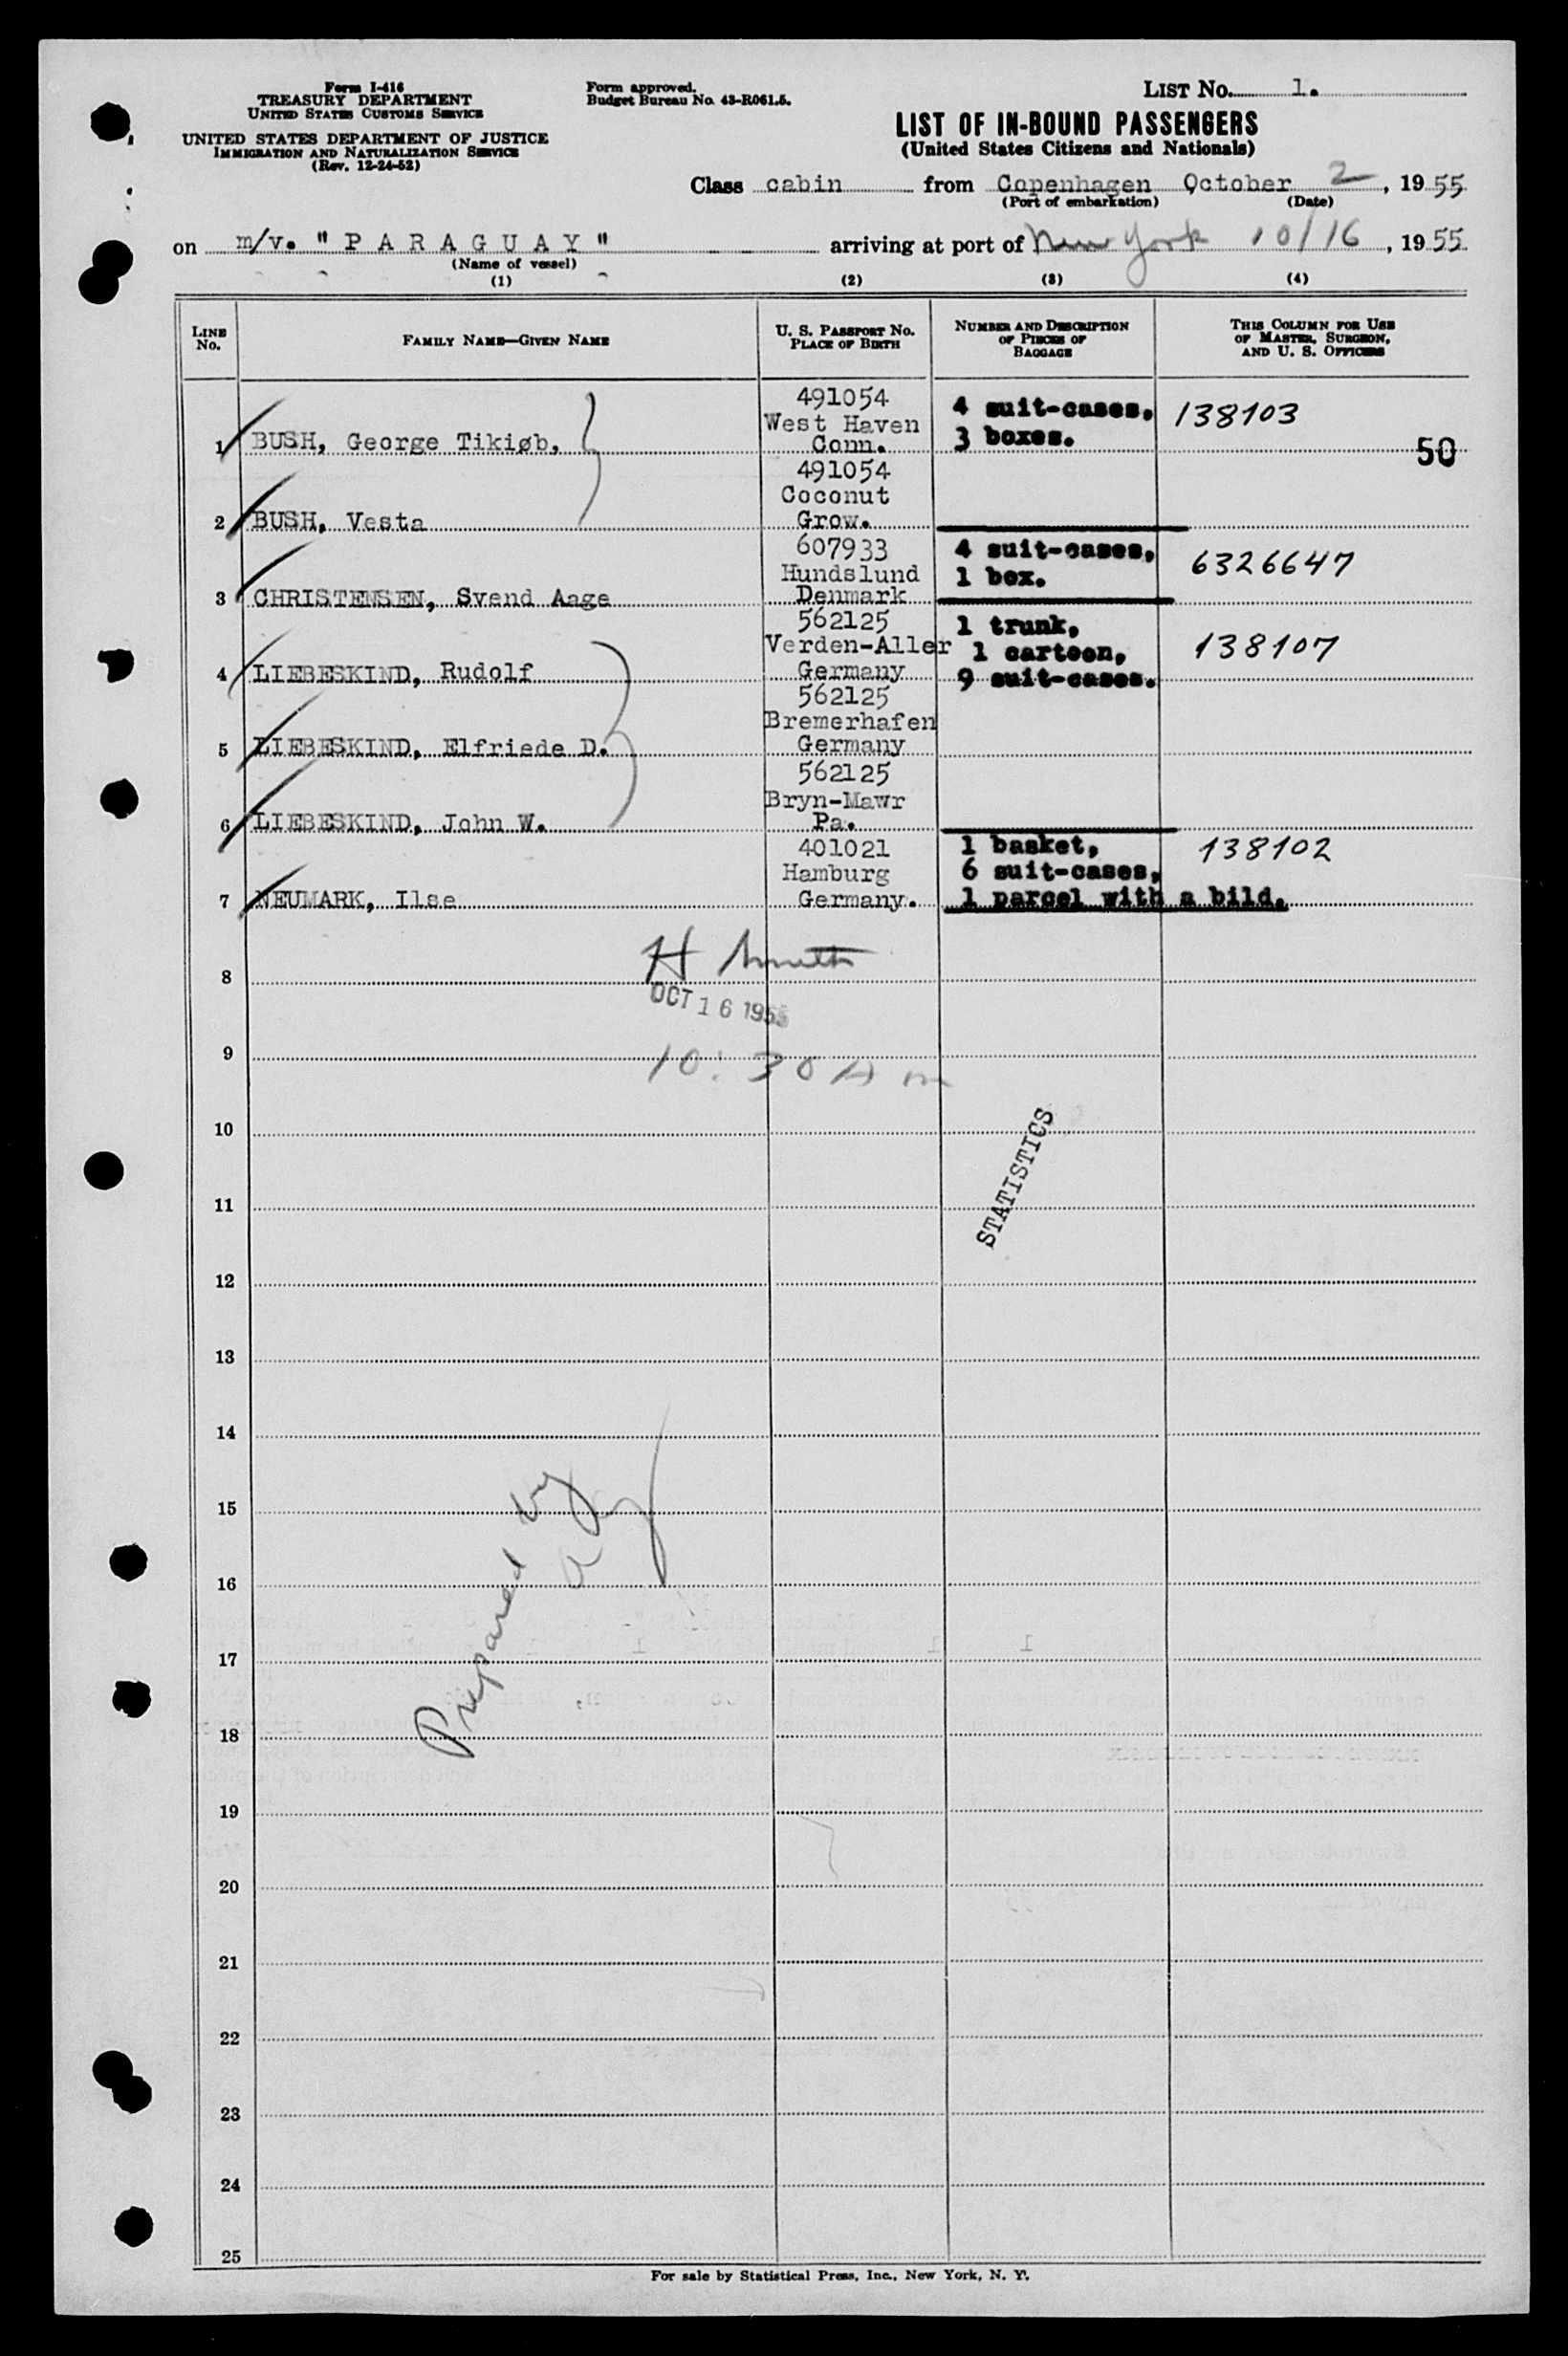 Form I-416
TREASURY DEPARTMENT
UNITED STATES CUSTOMS SERVICE
UNITED STATES DEPARTMENT OF JUSTICE
IMMIGRATION AND NATURALIZATION SERVICE
(Rev. 12-24-52)
Form approved.
Budget Bureau No. 43-R061.5.
LIST No. 1.
LIST OF IN-BOUND PASSENGERS
(United States Citizens and Nationals)
Class cabin from Copenhagen October 2, 1955
(Port of embarkation) (Date)
on m/v. "PARAGUAY" arriving at port of New York 10/16, 1955
(Name of vessel)
(1) (2) (3) (4)
LINE No.
FAMILY NAME—GIVEN NAME
U. S. PASSPORT NO.
PLACE OF BIRTH
NUMBER AND DESCRIPTION
OF PIECES OF
BAGGAGE
THIS COLUMN FOR USE
OF MASTER, SURGEON,
AND U. S. OFFICERS
491054
West Haven 4 suit-cases. 138103
1 BUSH, George Tikiøb, Conn. 3 boxes. 50
491054
Coconut
2 BUSH, Vesta Grow.
607933 4 suit-cases, 6326647
Hundslund 1 box.
3 CHRISTENSEN, Svend Aage Denmark
562125 1 trunk,
Verden-Aller 1 cartoon, 138107
4 LIEBESKIND, Rudolf Germany 9 suit-cases.
562125
Bremerhafen
5 LIEBESKIND, Elfriede D. Germany
562125
Bryn-Mawr
6 LIEBESKIND, John W. Pa.
401021 1 basket, 138102
Hamburg 6 suit-cases,
7 NEUMARK, Ilse Germany. 1 parcel with a bild.
H Smith
8
OCT 16 1955
9
10:30 A m
10
STATISTICS
11
12
13
14
15
Prepared by
16
17
18
19
20
21
22
23
24
25
For sale by Statistical Press, Inc., New York, N. Y.